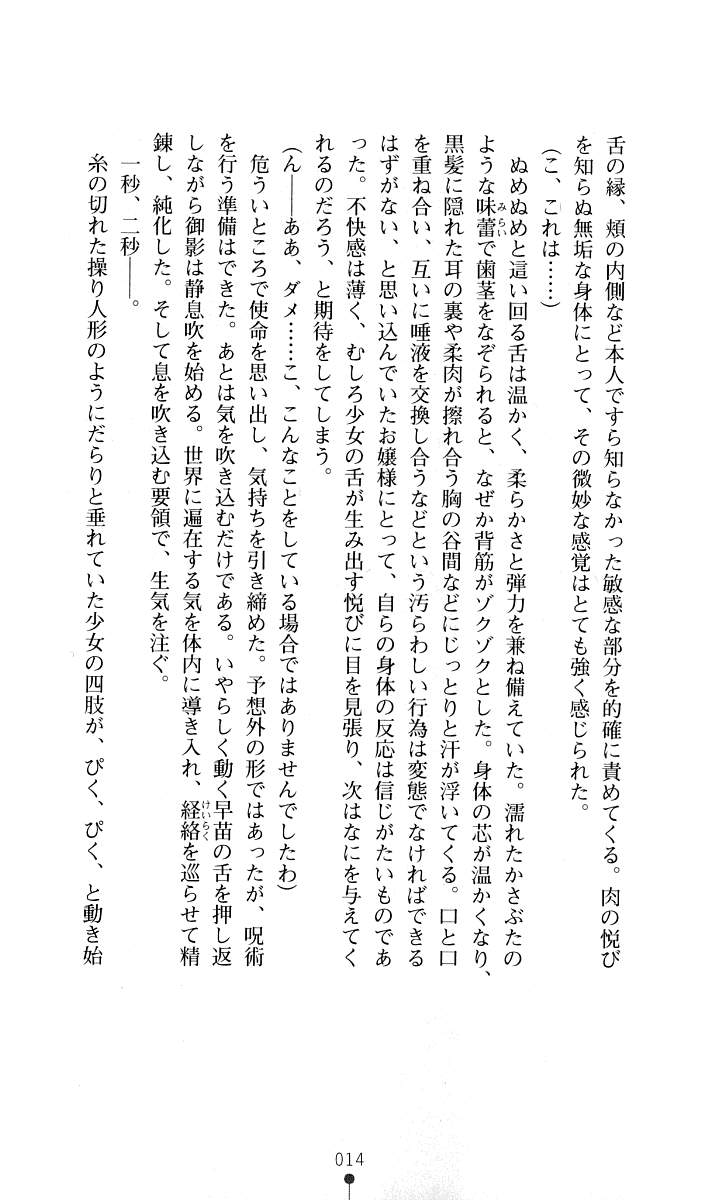 舌の縁、頬の内側など本人ですら知らなかった敏感な部分を的確に責めてくる。肉の悦び
を知らぬ無垢な身体にとって、その微妙な感覚はとても強く感じられた。
（こ、これは……）
ぬめぬめと這い回る舌は温かく、柔らかさと弾力を兼ね備えていた。濡れたかさぶたの
ような味蕾で歯茎をなぞられると、なぜか背筋がゾクゾクとした。身体の芯が温かくなり、
黒髪に隠れた耳の裏や柔肉が擦れ合う胸の谷間などにじっとりと汗が浮いてくる。口と口
を重ね合い、互いに唾液を交換し合うなどという汚らわしい行為は変態でなければできる
はずがない、と思い込んでいたお嬢様にとって、自らの身体の反応は信じがたいものであ
った。不快感は薄く、むしろ少女の舌が生み出す悦びに目を見張り、次はなにを与えてく
れるのだろう、と期待をしてしまう。
（ん――ああ、ダメ……こ、こんなことをしている場合ではありませんでしたわ）
危ういところで使命を思い出し、気持ちを引き締めた。予想外の形ではあったが、呪術
を行う準備はできた。あとは気を吹き込むだけである。いやらしく動く早苗の舌を押し返
しながら御影は静息吹を始める。世界に遍在する気を体内に導き入れ、経絡を巡らせて精
錬し、純化した。そして息を吹き込む要領で、生気を注ぐ。
一秒、二秒――。
糸の切れた操り人形のようにだらりと垂れていた少女の四肢が、ぴく、ぴく、と動き始
みらい
けいらく
014